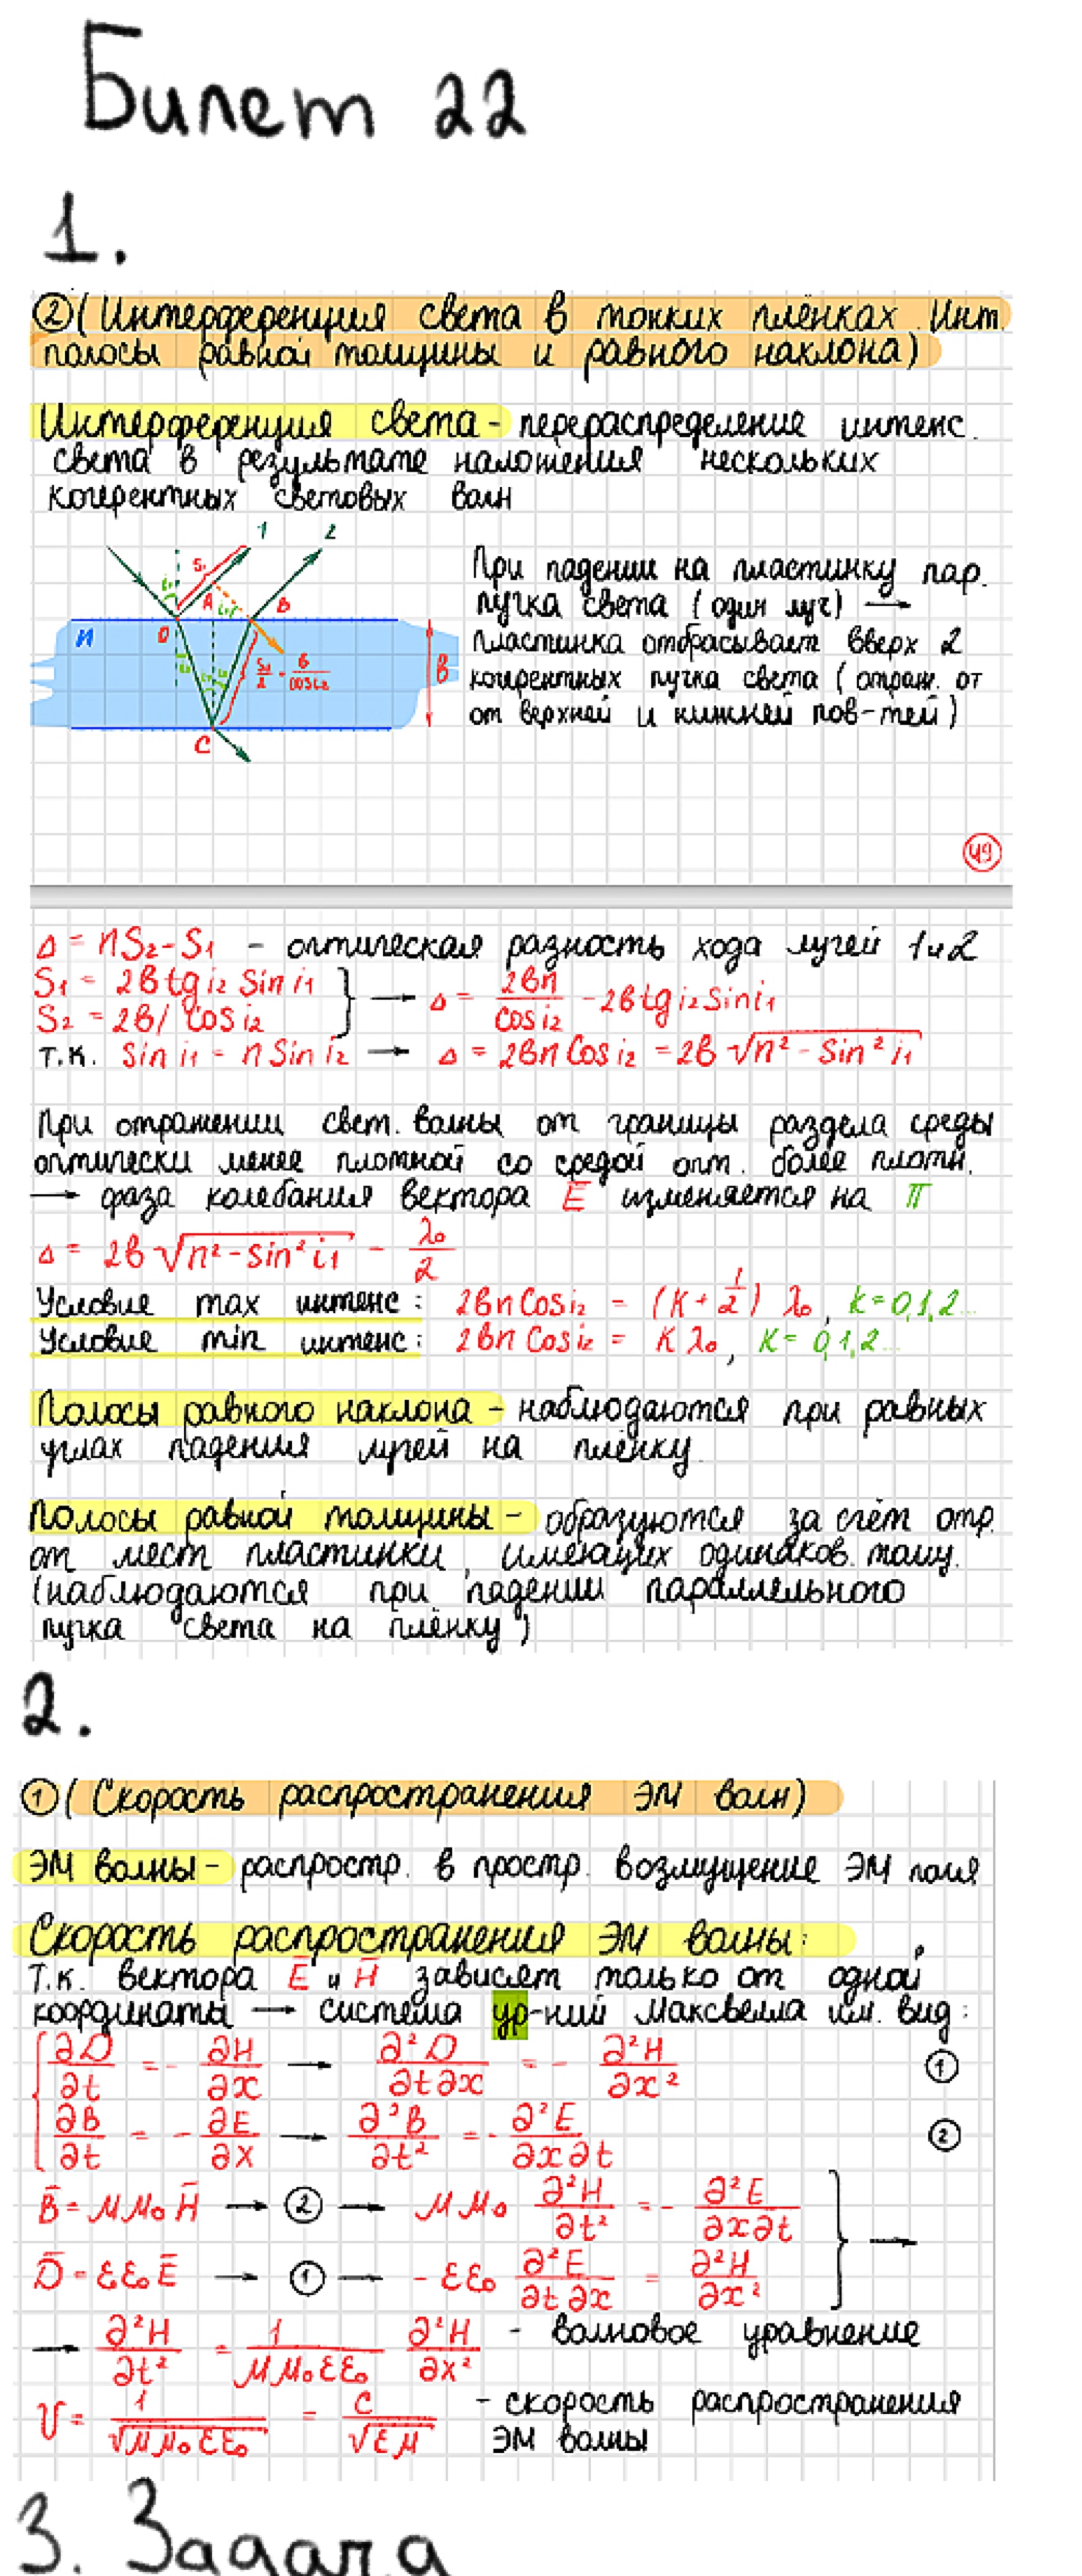 Билет 22
1.
② (Интерференция света в тонких плёнках. Инт.
полосы равной толщины и равного наклона)
Интерференция света - перераспределение интенс.
света в результате наложения нескольких
когерентных световых волн
1 2
S₁
i₁ A i₁ B
O
n
i₂ i₂ i₂
S₂/2 = b/cos i₂
b
C
При падении на пластинку пар.
пучка света (один луч) →
пластинка отбрасывает вверх 2
когерентных пучка света (отраж. от
от верхней и нижней пов-тей)
49
Δ = nS₂-S₁ - оптическая разность хода лучей 1 и 2
S₁ = 2b tg i₂ Sin i₁
S₂ = 2b/ Cos i₂ } → Δ = 2bn/Cos i₂ - 2b tg i₂ Sin i₁
т.к. Sin i₁ = n Sin i₂ → Δ = 2bn Cos i₂ = 2b √(n² - Sin² i₁)
При отражении свет. волны от границы раздела среды
оптически менее плотной со средой опт. более плотн.
→ фаза колебания вектора Ē изменяется на π
Δ = 2b √(n² - Sin² i₁) - λ₀/2
Условие max интенс: 2bn Cos i₂ = (K + 1/2) λ₀, k = 0,1,2...
Условие min интенс: 2bn Cos i₂ = K λ₀, K = 0,1,2...
Полосы равного наклона - наблюдаются при равных
углах падения лучей на плёнку.
Полосы равной толщины - образуются за счёт отр.
от мест пластинки, имеющих одинаков. толщ.
(наблюдаются при падении параллельного
пучка света на плёнку)
2.
① (Скорость распространения ЭМ волн)
ЭМ волны - распростр. в простр. возмущение ЭМ поля
Скорость распространения ЭМ волны:
т.к. вектора Ē и H̄ зависят только от одной
координаты → система ур-ний Максвелла им. вид:
{ ∂D/∂t = - ∂H/∂x → ∂²D/∂t∂x = - ∂²H/∂x² ①
∂B/∂t = - ∂E/∂x → ∂²B/∂t² = - ∂²E/∂x∂t ②
B̄ = μμ₀H̄ → ② → μμ₀ ∂²H/∂t² = - ∂²E/∂x∂t
D̄ = εε₀Ē → ① → - εε₀ ∂²E/∂t∂x = ∂²H/∂x² } →
→ ∂²H/∂t² = 1/μμ₀εε₀ ∂²H/∂x² - волновое уравнение
V = 1/√(μμ₀εε₀) = C/√(εμ) - скорость распространения
ЭМ волны
3. Задача